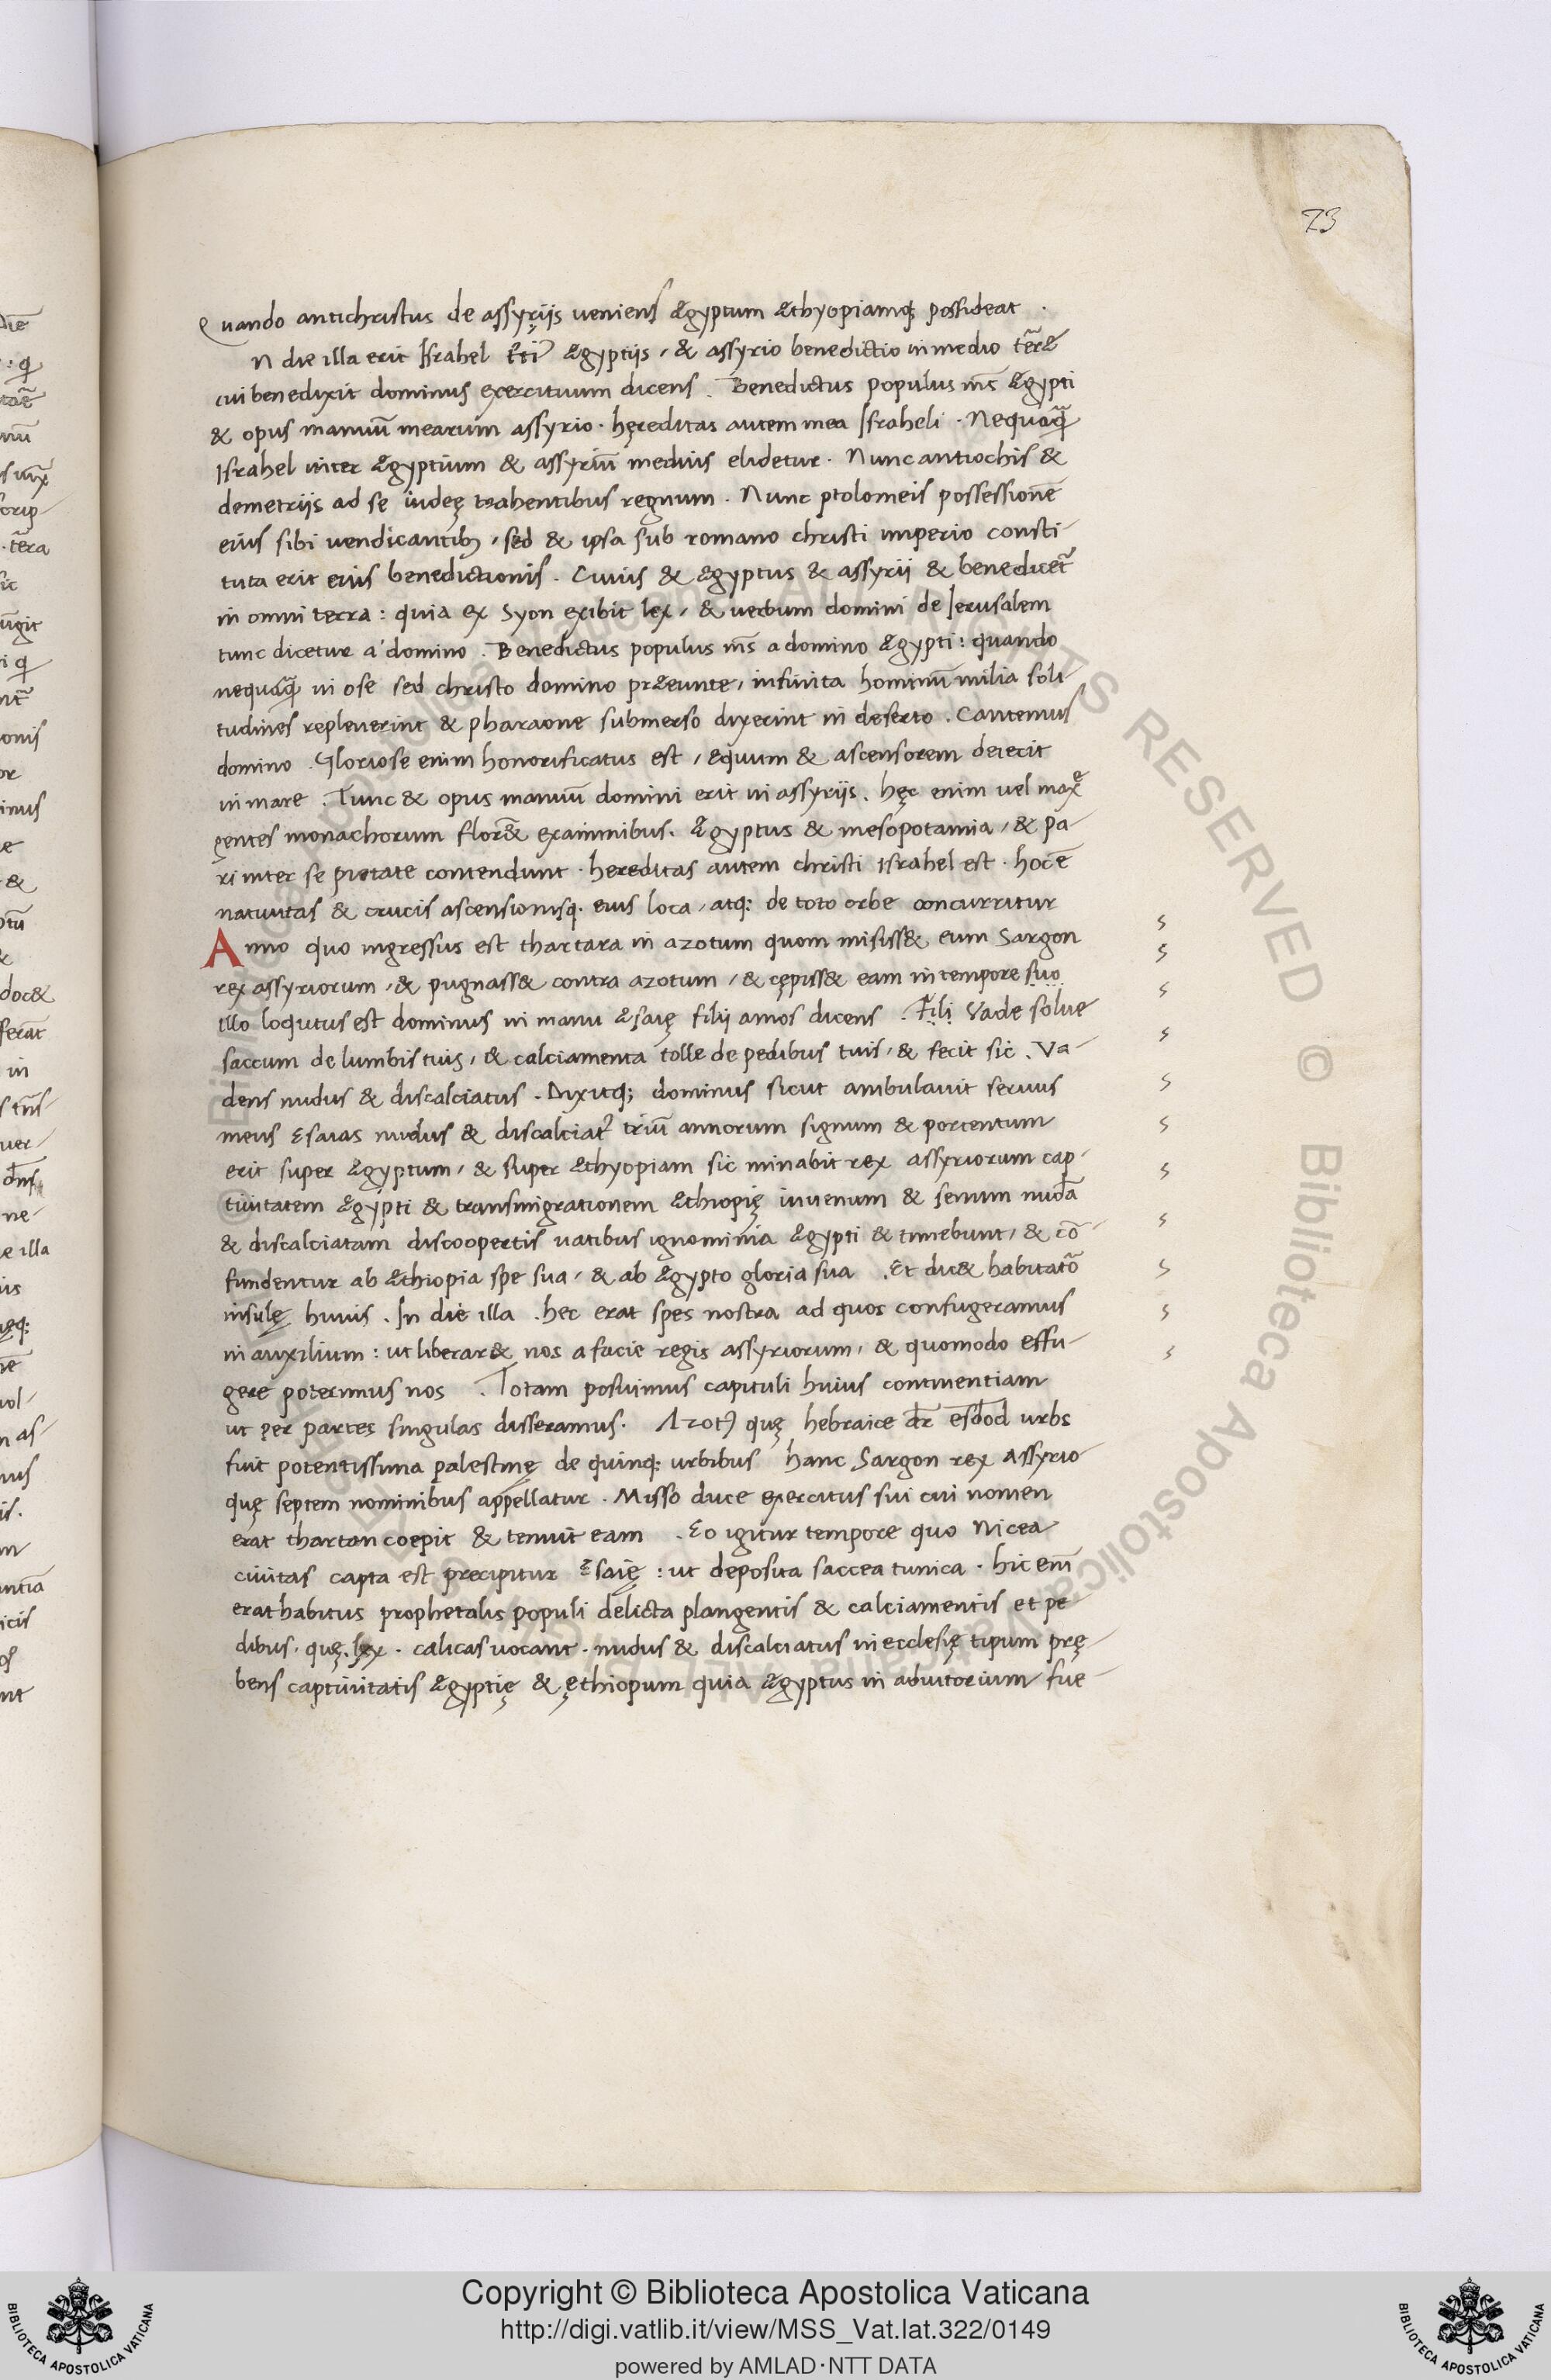 73
Quando antichristus de assyrijs veniens ægyptum æthyopiamq; possideat .
N die illa erit Israhel ægyptijs, & assyrio benedictio in medio terræ
cui benedixit dominus exercituum dicens . Benedictus populus ms̄ ægypti
& opus manuū mearum assyrio . hęreditas autem mea Israheli . Nequaq̄
Israhel inter ægyptium & assyriū medius elidetur . Nunc antiochis &
demetrijs ad se iudeę trahentibus regnum . Nunc ptolomeis possessionē
eius sibi vendicantib; , sed & ipsa sub romano christi imperio consti-
tuta erit eius benedictionis . Cuius & ægyptus & assyrij & benedicet̄
in omni terra : quia ex Syon exibit lex, & verbum domini de Ierusalem
tunc dicetur a' domino . Benedictus populus ms̄ a domino ægypti : quando
nequaq̄ ui ose sed christo domino præeunte, infinita hominū milia soli-
tudines repleverint & pharaone submerso dixerint in deserto . Cantemus
domino . Gloriose enim honorificatus est , æquum & ascensorem deiecit
in mare . Tunc & opus manuū domini erit in assyrijs . hęc enim vel maxe
gentes monachorum flor& examinibus . Ægyptus & mesopotamia , & pa-
ri inter se pietate contendunt . hereditas autem christi Israhel est . hoc ē
nativitas & crucis ascensionisq. eius loca , atq: de toto orbe concurritur
Anno quo ingressus est thartara in azotum quom misiss& eum Sargon
rex assyriorum , & pugnass& contra azotum , & cępiss& eam in tempore suo
illo loqutus est dominus in manu æsaię filij amos dicens . Fili Vade solve
saccum de lumbis tuis , & calciamenta tolle de pedibus tuis , & fecit sic . Va-
dens nudus & discalciatus . Dixitq; dominus sicut ambulavit servus
meus Esaias nudus & discalciat⁹ triū annorum signum & portentum
erit super ægyptum , & super æthyopiam sic minabit rex assyriorum cap-
tivitatem ægypti & transmigrationem æthiopię iuvenum & senum nudā
& discalciatam discoopertis natibus ignominia ægypti & timebunt , & cō-
fundentur ab æthiopia spe sua , & ab ægypto gloria sua . Et dic& habitatō
insulę huius . In die illa . hec erat spes nostra ad quos confugeramus
in auxilium : ut liberar& nos a facie regis assyriorum , & quomodo effu-
gere poterimus nos . Totam posuimus capituli huius continentiam
ut per partes singulas disseramus . Azot⁹ quę hebraice dr̄ esdod urbs
fuit potentissima palestinę de quinq: urbibus hanc Sargon rex assyrio
quę septem nominibus appellatur . Misso duce exercitus sui cui nomen
erat thartan coepit & tenuit eam . Eo igitur tempore quo Nicea
civitas capta est precipitur Esaię : ut deposita saccea tunica . hic em̄
erat habitus prophetalis populi delicta plangentis & calciamentis et pe-
dibus . quę . lxx . calicas vocant . nudus & discalciatus in ecclesię tipum prę-
bens captivitatis ægyptię & ęthiopum quia ægyptus in adiutorium fue-
Copyright © Biblioteca Apostolica Vaticana
http://digi.vatlib.it/view/MSS_Vat.lat.322/0149
powered by AMLAD·NTT DATA
BIBLIOTECA APOSTOLICA VATICANA
BIBLIOTECA APOSTOLICA VATICANA